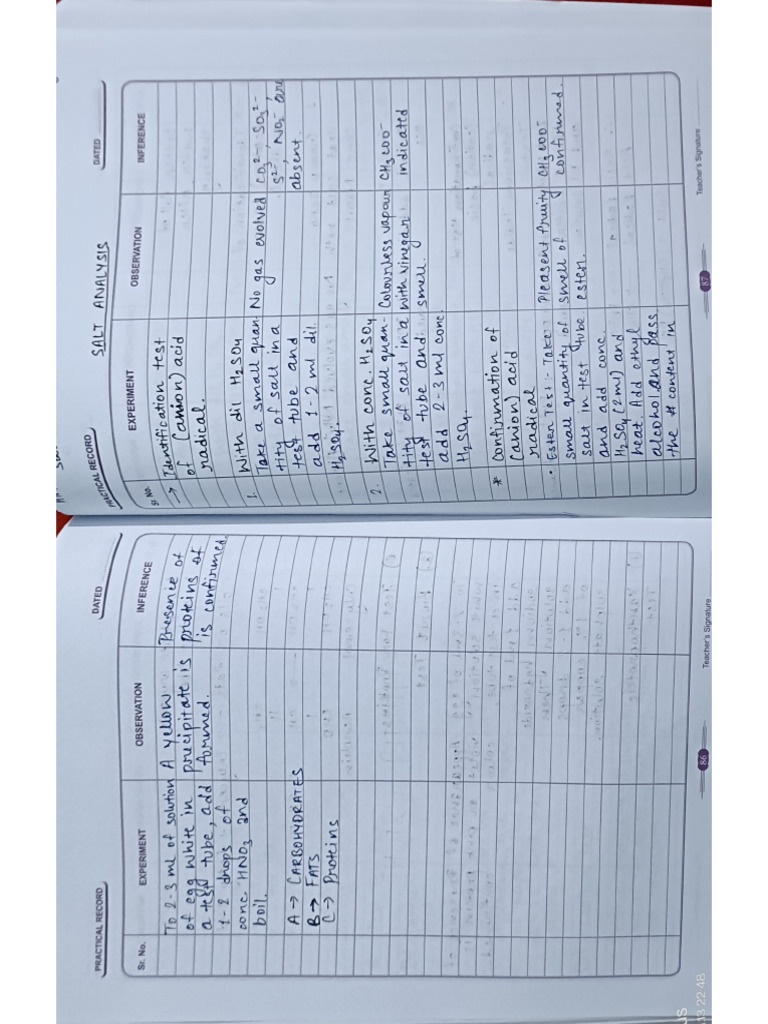 PRACTICAL RECORD
DATED
Sr. No.
EXPERIMENT
OBSERVATION
INFERENCE
To 2-3 ml of solution
of egg white in
a test tube, add
1-2 drops of
conc. HNO3 and
boil.
A yellow
precipitate is
formed.
Presence of
proteins of
is confirmed
A → CARBOHYDRATES
B → FATS
C → Proteins
86
Teacher's Signature
PRACTICAL RECORD
SALT ANALYSIS
DATED
Sr. No.
EXPERIMENT
OBSERVATION
INFERENCE
→ Identification test
of (anion) acid
radical.
With dil H2SO4
1. Take a small quan
tity of salt in a
test tube and
add 1-2 ml dil.
H2SO4.
No gas evolved
CO3 2-, SO3 2-
S2-, NO2- are
absent.
2. With conc. H2SO4
Take small quan-
tity of salt in a
test tube and
add 2-3 ml conc
H2SO4
Colourless vapour
with vinegar
smell.
CH3COO-
indicated
* Confirmation of
(anion) acid
radical
• Ester Test :- Take
small quantity of
salt in test tube
and add conc.
H2SO4 (2ml) and
heat. Add ethyl
alcohol and pass
the content in
Pleasent fruity
smell of
ester.
CH3COO-
confirmed.
87
Teacher's Signature
13 22:48